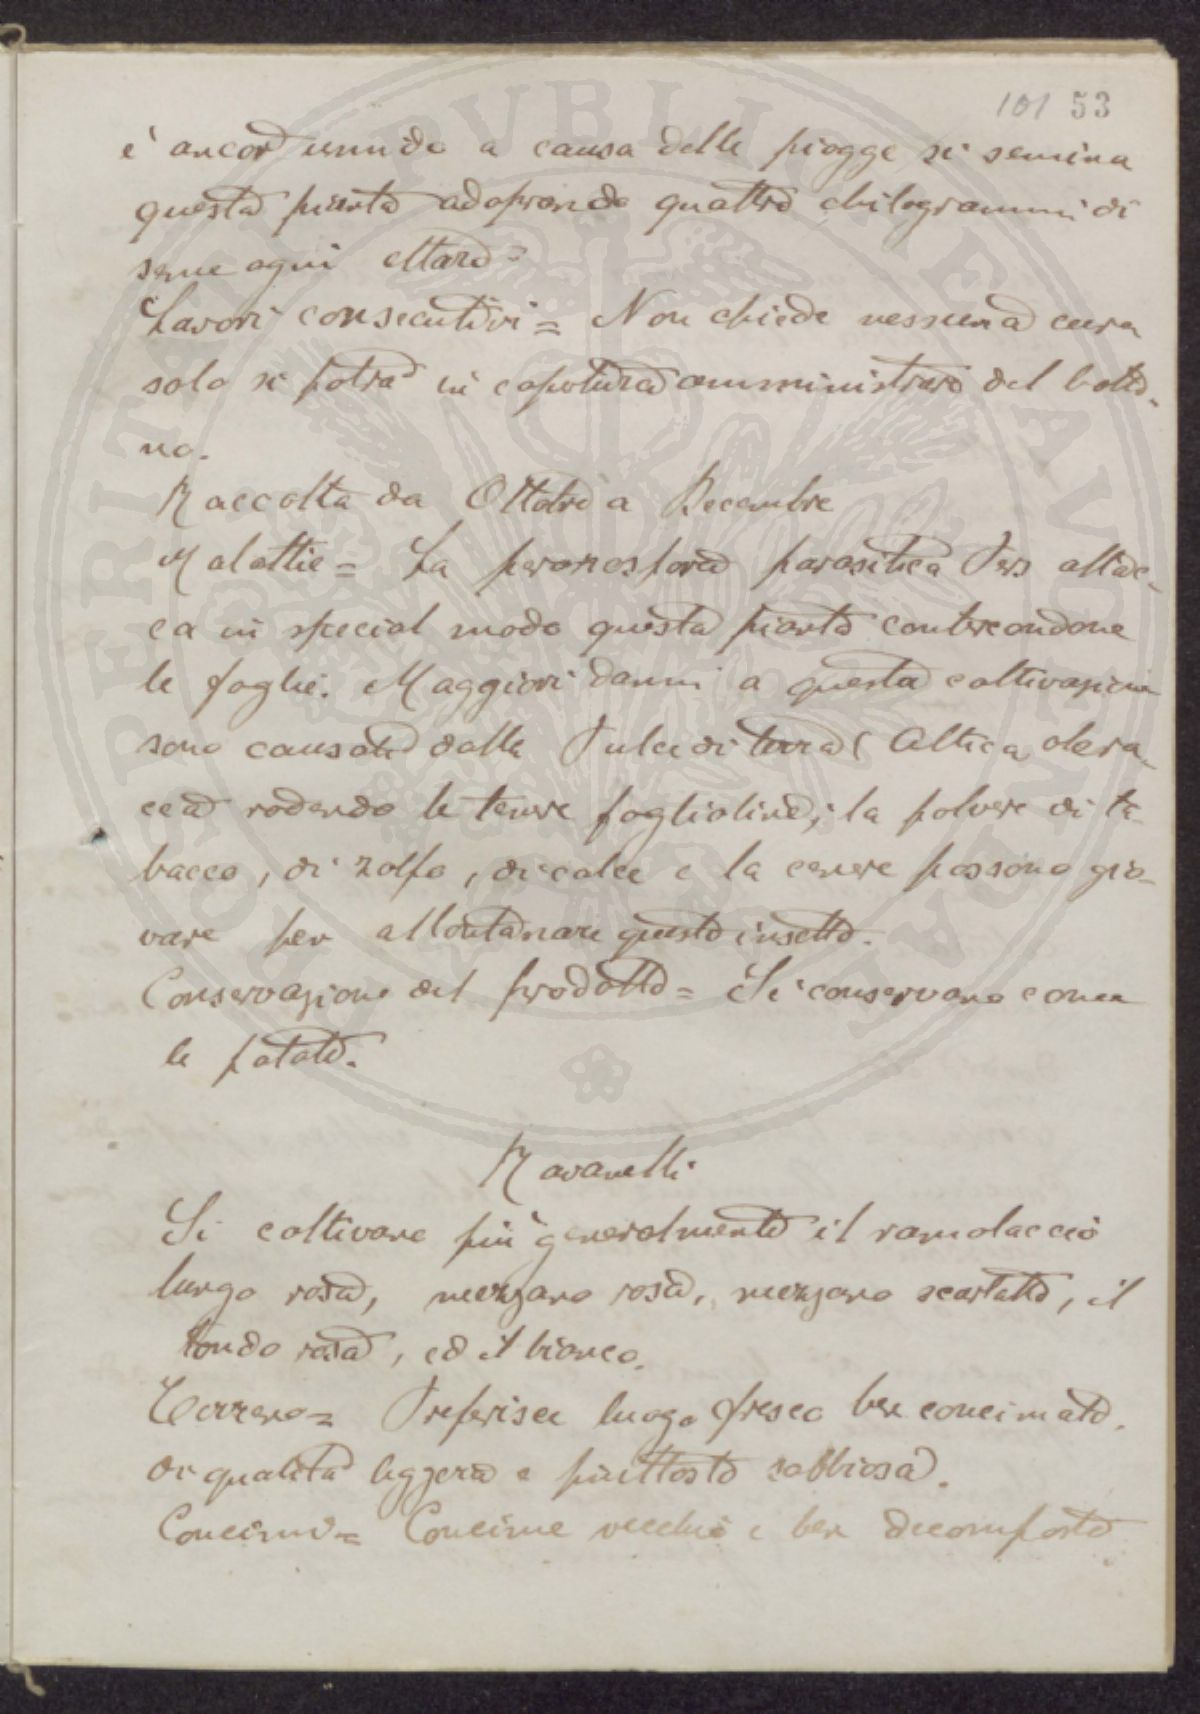 101 53
è ancora umido a causa delle piogge, si semina
questa pianta adoprando quattro chilogrammi di
seme ogni ettaro =
Lavori consecutivi = Non chiede nessuna cura
solo si potrà in copertura amministrare del botti-
no.
Raccolta da Ottobre a Decembre
Malattie = La peronospora parasitica Pers attac-
ca in special modo questa pianta contorcendone
le foglie. Maggiori danni a questa coltivazione
sono causate dalla Pulce di terra (Altica olera-
cea rodendo le tenere foglioline; la polvere di ta-
bacco, di zolfo, di calce e la cenere possono gio-
vare per allontanare questo insetto.
Conservazione del prodotto = Si conservano come
le patate.
Ravanelli
Si coltivano più generalmente il ramolaccio
lungo rosa, mezzano rosa, mezzano scarlatto, il
tondo rosa, ed il bianco.
Terreno = Preferisce luogo fresco ben concimato.
di qualità leggera e piuttosto sabbiosa.
Concimi = Concime vecchio e ben decomposto
PROSPERITATI PVBLICAE AVGENDAE